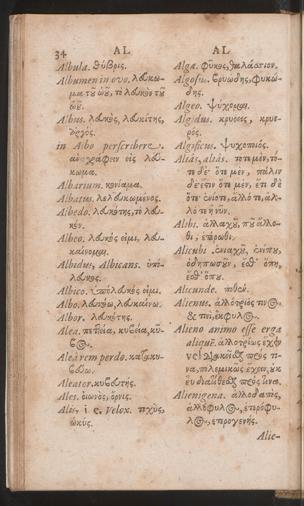 34 AL AL
Albula. θύβρις.
Albumen in ovo. λεύκω-
μα τȣ͂ ὠȣ͂, τὸ λευκὸν τȣ͂
ὠȣ͂.
Albus. λευκὸς, λευκίτης,
ἀργός.
in Albo perscribere.
ἀναγράφειν εἰς λεύ-
κωμα.
Albarium. κονίαμα.
Albatus. λελευκωμένος.
Albedo. λευκότης, τὸ λευ-
κόν.
Albeo. λευκός εἰμι, λευ-
καίνομαι.
Albidus, Albicans. ὑπό-
λευκος.
Albico. ὑπόλευκός εἰμι.
Albo. λευκόω, λευκαίνω.
Albor. λευκότης.
Alea. πεττεία, κυβεία, κύ-
βος.
Aleâ rem perdo. κατακυ-
βεύω.
Aleator. κυβευτής.
Ales. οἰωνός, ὄρνις.
Ales, i. e. velox. ταχὺς,
ὠκύς.
Alga. φῦκος,
Algosus. βρυώδης, φυκώ-
δης.
Algeo. ψύχομαι.
Algidus. κρυόεις, κρυε-
ρός.
Algificus. ψυχοποιός.
Aliàs, aliàs. τοτὲ μὲν, το-
τὲ δέ· ὁτὲ μὲν, πάλιν
δέ· ἔστιν ὅτε μὲν, ἔτι δὲ
ὅτε· ἐνίοτε, ἄλλοτε, ἀλ-
λότε νῦν.
Alibi. ἀλλαχȣ͂, πȣ ἄλλο-
θι, ἑτέρωθι.
Alicubi. ἐνιαχȣ͂,
ὁδηπωσȣ͂ν, ἐσθ' ὅπη,
ἐσθ' ὅπȣ.
Alicunde. ποθέν.
Alienus. ἀλλότριός τινος
ἔκφυλος.
Alieno animo esse erga
aliquē. ἀλλοτρίως ἔχειν
vel διακεῖσθαι πρός τι-
να, πολεμικῶς ἔχειν, ȣκ
εὖ διακεῖσθαι πρός τινα.
Alienigena. ἀλλοδαπός,
ἀλλόφυλος, ἑτερόφυ-
λος, ἑτερογενής.
Alie-